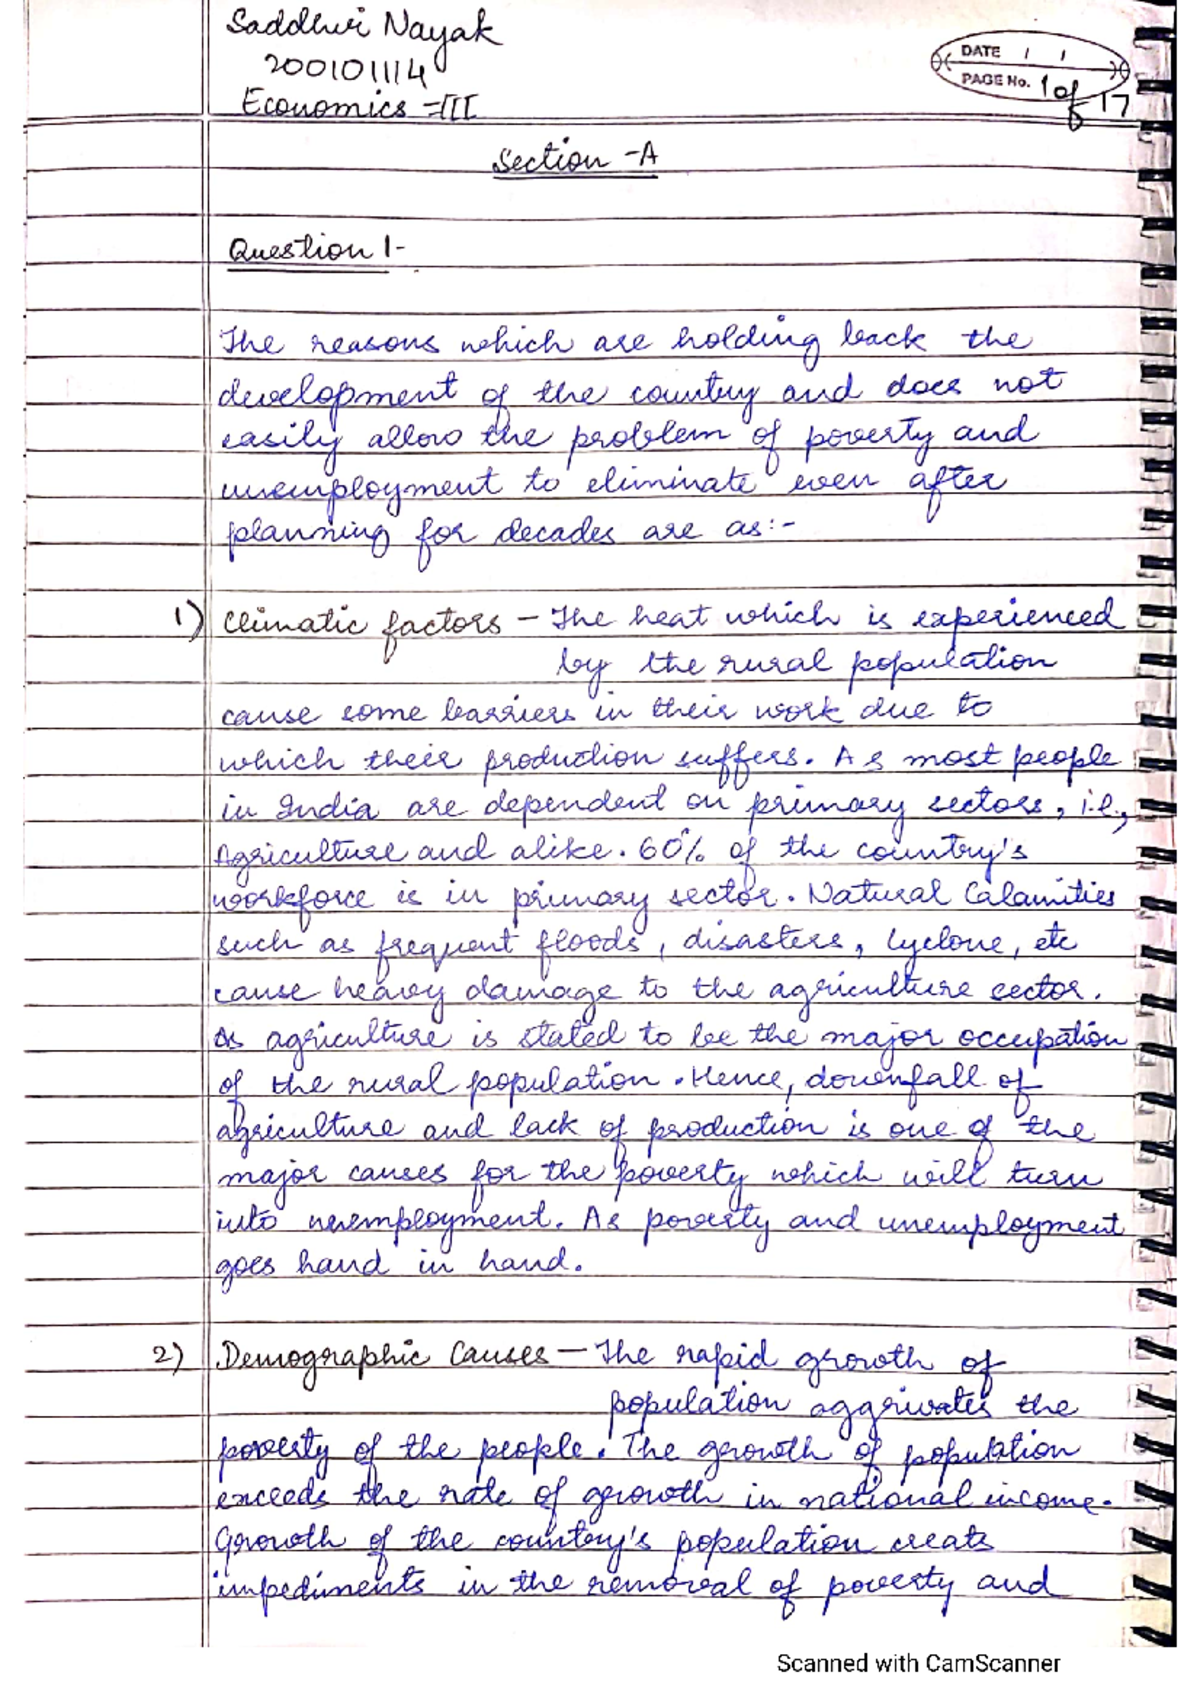 Saddhvi Nayak
200101114
Economics -III
DATE / /
PAGE No. 1 of 17
Section -A
Question 1-
The reasons which are holding back the
development of the country and does not
easily allow the problem of poverty and
unemployment to eliminate even after
planning for decades are as:-
1) Climatic factors - The heat which is experienced
by the rural population
cause some barriers in their work due to
which their production suffers. As most people
in India are dependent on primary sectors, i.e.,
Agriculture and alike. 60% of the country's
workforce is in primary sector. Natural Calamities
such as frequent floods, disasters, cyclone, etc
cause heavy damage to the agriculture sector.
As agriculture is stated to be the major occupation
of the rural population. Hence, downfall of
agriculture and lack of production is one of the
major causes for the poverty which will turn
into unemployment. As poverty and unemployment
goes hand in hand.
2) Demographic Causes - The rapid growth of
population aggrivates the
poverty of the people. The growth of population
exceeds the rate of growth in national income.
Growth of the country's population creats
impediments in the removal of poverty and
Scanned with CamScanner